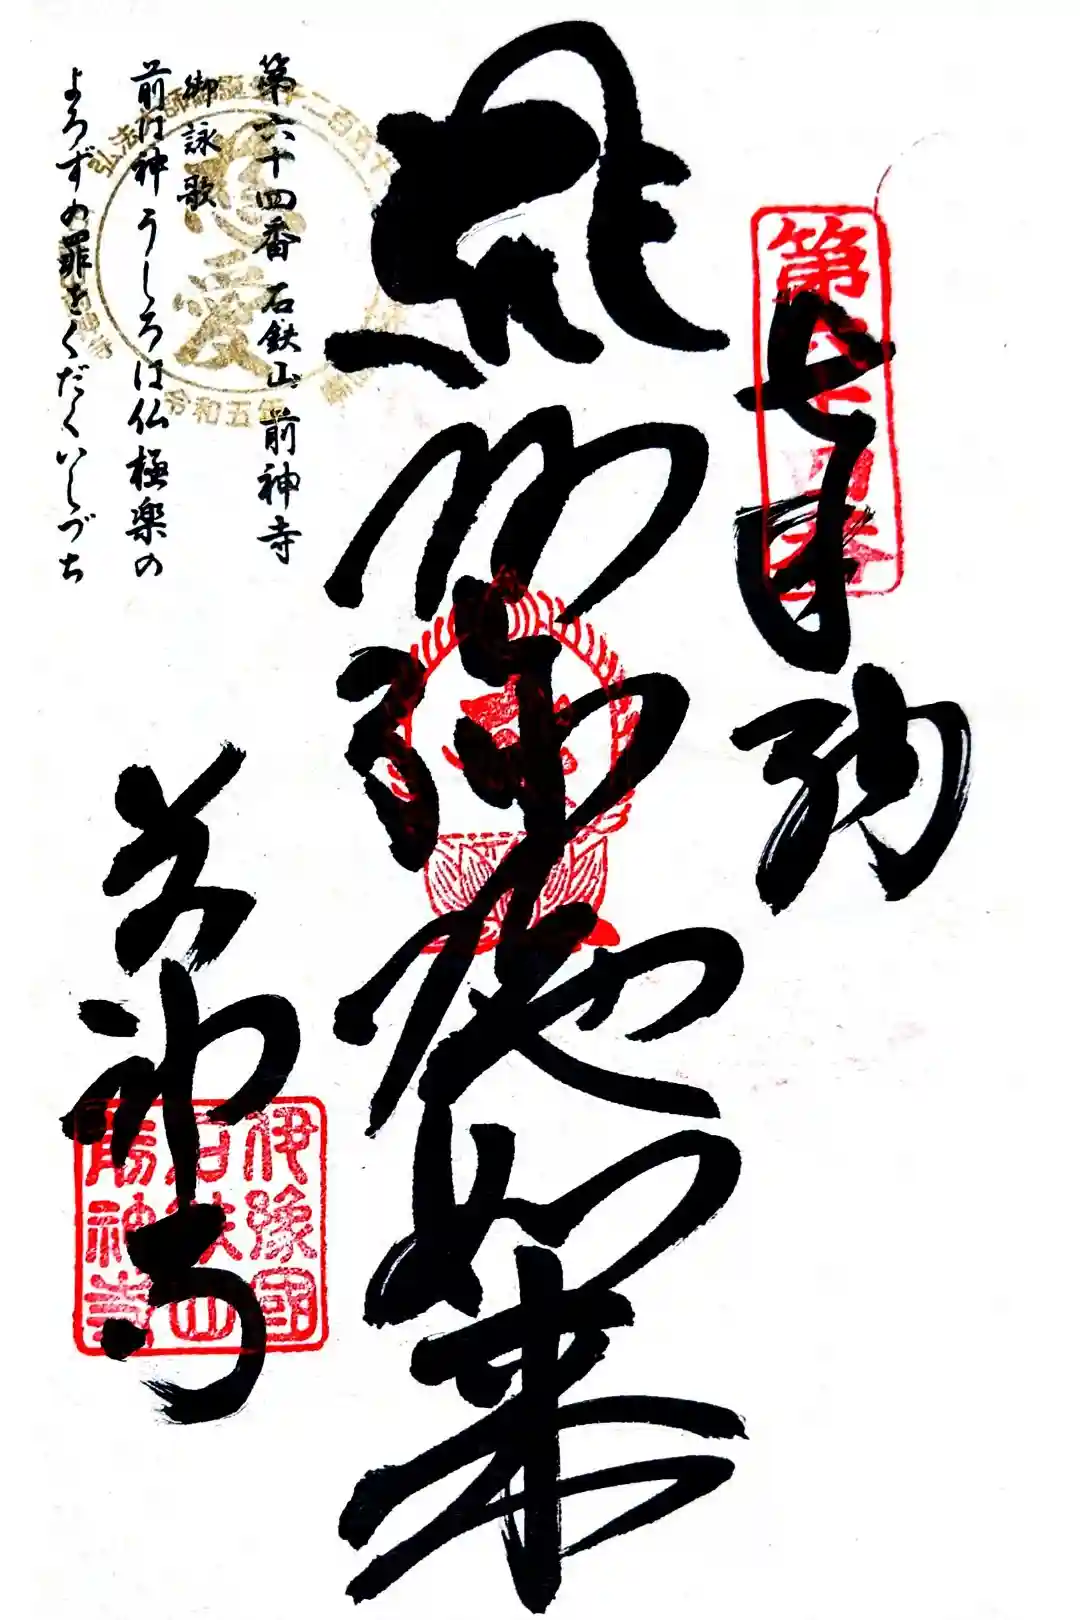 奉納
第六十四番
阿弥陀如来
前神寺
伊豫國
石鈇山
前神寺
第六十四番 石鉄山 前神寺
御詠歌
前は神 うしろは仏 極楽の
よろずの罪をくだくいしづち
慈愛
令和五年